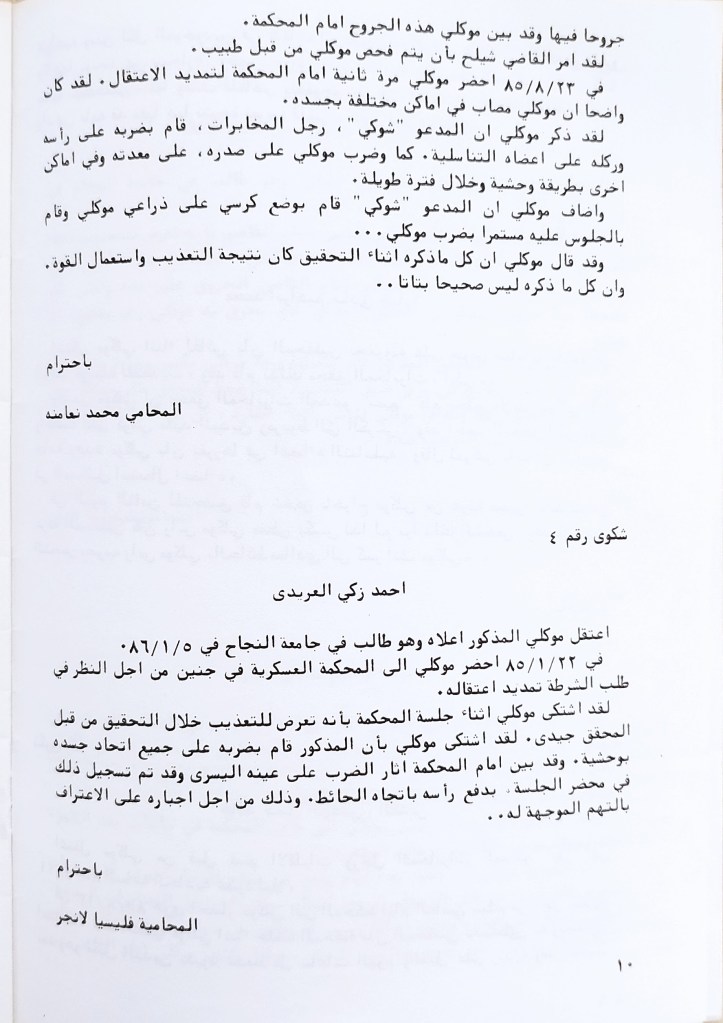 جروحا فيها وقد بين موكلي هذه الجروح امام المحكمة.
لقد امر القاضي شيلح بأن يتم فحص موكلي من قبل طبيب.
في ٨٥/٨/٢٣ احضر موكلي مرة ثانية امام المحكمة لتمديد الاعتقال. لقد كان
واضحا ان موكلي مصاب في اماكن مختلفة بجسده.
لقد ذكر موكلي ان المدعو "شوكي"، رجل المخابرات، قام بضربه على رأسه
وركله على اعضاه التناسلية. كما وضرب موكلي على صدره، على معدته وفي اماكن
اخرى بطريقة وحشية وخلال فترة طويلة.
واضاف موكلي ان المدعو "شوكي" قام بوضع كرسي على ذراعي موكلي وقام
بالجلوس عليه مستمرا بضرب موكلي...
وقد قال موكلي ان كل ماذكره اثناء التحقيق كان نتيجة التعذيب واستعمال القوة.
وان كل ما ذكره ليس صحيحا بتاتا..
باحترام
المحامي محمد نعامنه
شكوى رقم ٤
احمد زكي العريدى
اعتقل موكلي المذكور اعلاه وهو طالب في جامعة النجاح في ٨٦/١/٥.
في ٨٥/١/٢٢ احضر موكلي الى المحكمة العسكرية في جنين من اجل النظر في
طلب الشرطة تمديد اعتقاله.
لقد اشتكى موكلي اثناء جلسة المحكمة بأنه تعرض للتعذيب خلال التحقيق من قبل
المحقق جيدى. لقد اشتكى موكلي بأن المذكور قام بضربه على جميع اتحاد جسده
بوحشية. وقد بين امام المحكمة اثار الضرب على عينه اليسرى وقد تم تسجيل ذلك
في محضر الجلسة، بدفع رأسه باتجاه الحائط. وذلك من اجل اجباره على الاعتراف
بالتهم الموجهة له..
باحترام
المحامية فليسيا لانجر
١٠